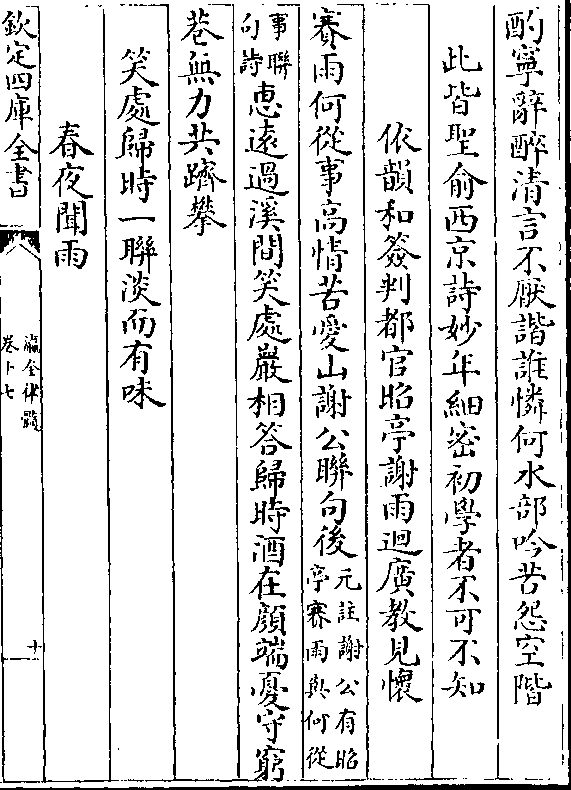 酌寧辭醉清言不厭諧誰憐何水部吟苦怨空階
此皆聖俞西京詩妙年細密初學者不可不知
依韻和簽判都官昭亭謝雨迴廣教見懷
賽雨何從事高情苦愛山謝公聯句後元註謝公有昭
亭賽雨與何從
事聯
句詩恵遠過溪間笑處嚴相答歸時酒在顔端憂守窮
巷無力共躋攀
笑處歸時一聯淡而有味
春夜聞雨
欽定四庫全書
瀛奎律髓
卷十七
十